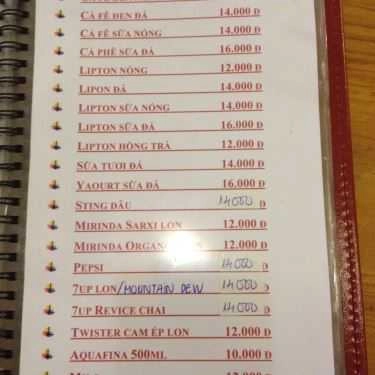 CÀ FÊ ĐEN ĐÁ 14.000 Đ
CÀ FÊ SỮA NÓNG 14.000 Đ
CÀ PHÊ SỮA ĐÁ 16.000 Đ
LIPTON NÓNG 12.000 Đ
LIPON ĐÁ 14.000 Đ
LIPTON SỮA NÓNG 14.000 Đ
LIPTON SỮA ĐÁ 16.000 Đ
LIPTON HỒNG TRÀ 12.000 Đ
SỮA TƯƠI ĐÁ 14.000 Đ
YAOURT SỮA ĐÁ 16.000 Đ
STING DÂU 14000 Đ
MIRINDA SARXI LON 12.000 Đ
MIRINDA 12.000 Đ
PEPSI 14000 Đ
7UP LON/MOUNTAIN DEW 14000 Đ
7UP REVICE CHAI 14000 Đ
TWISTER CAM ÉP LON 12.000 Đ
AQUAFINA 500ML 10.000 Đ